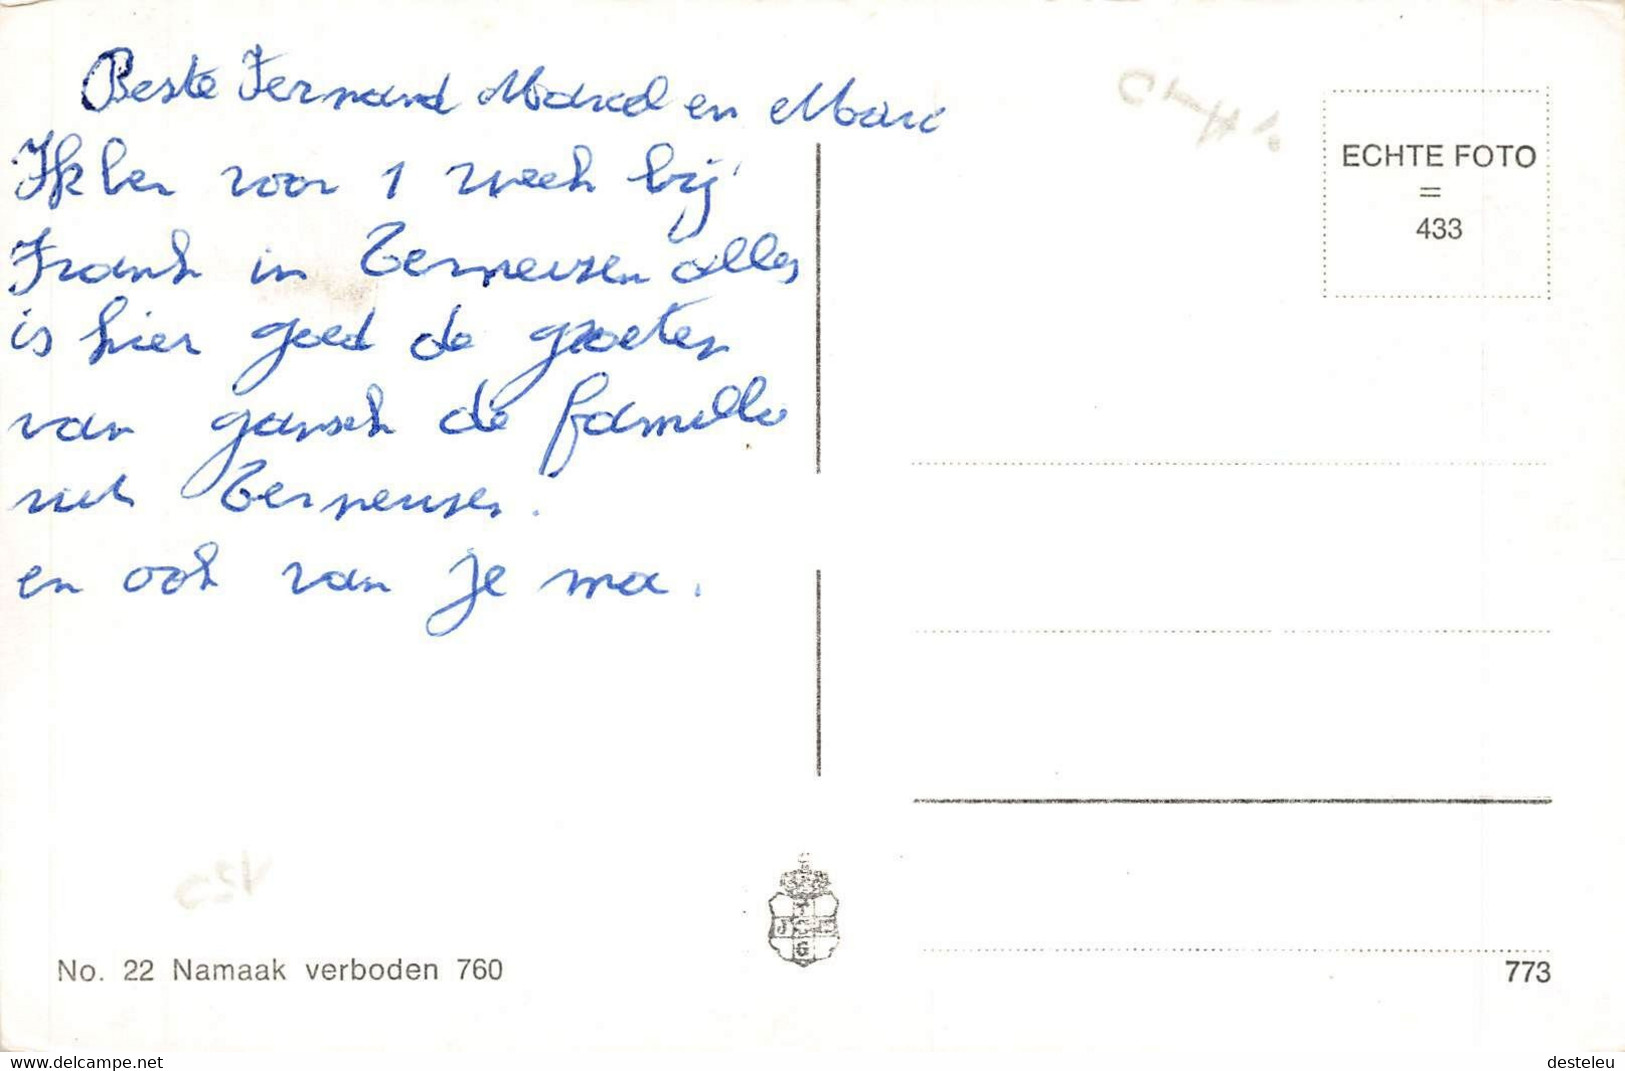 Beste Fernand Marcel en Marc
Ik ben voor 1 week bij
Frank in Terneuzen alles
is hier goed de groeten
van gansch de famille
uit Terneuzen.
en ook van je ma.
ECHTE FOTO
=
433
No. 22 Namaak verboden 760
773
www.delcampe.net
desteleu